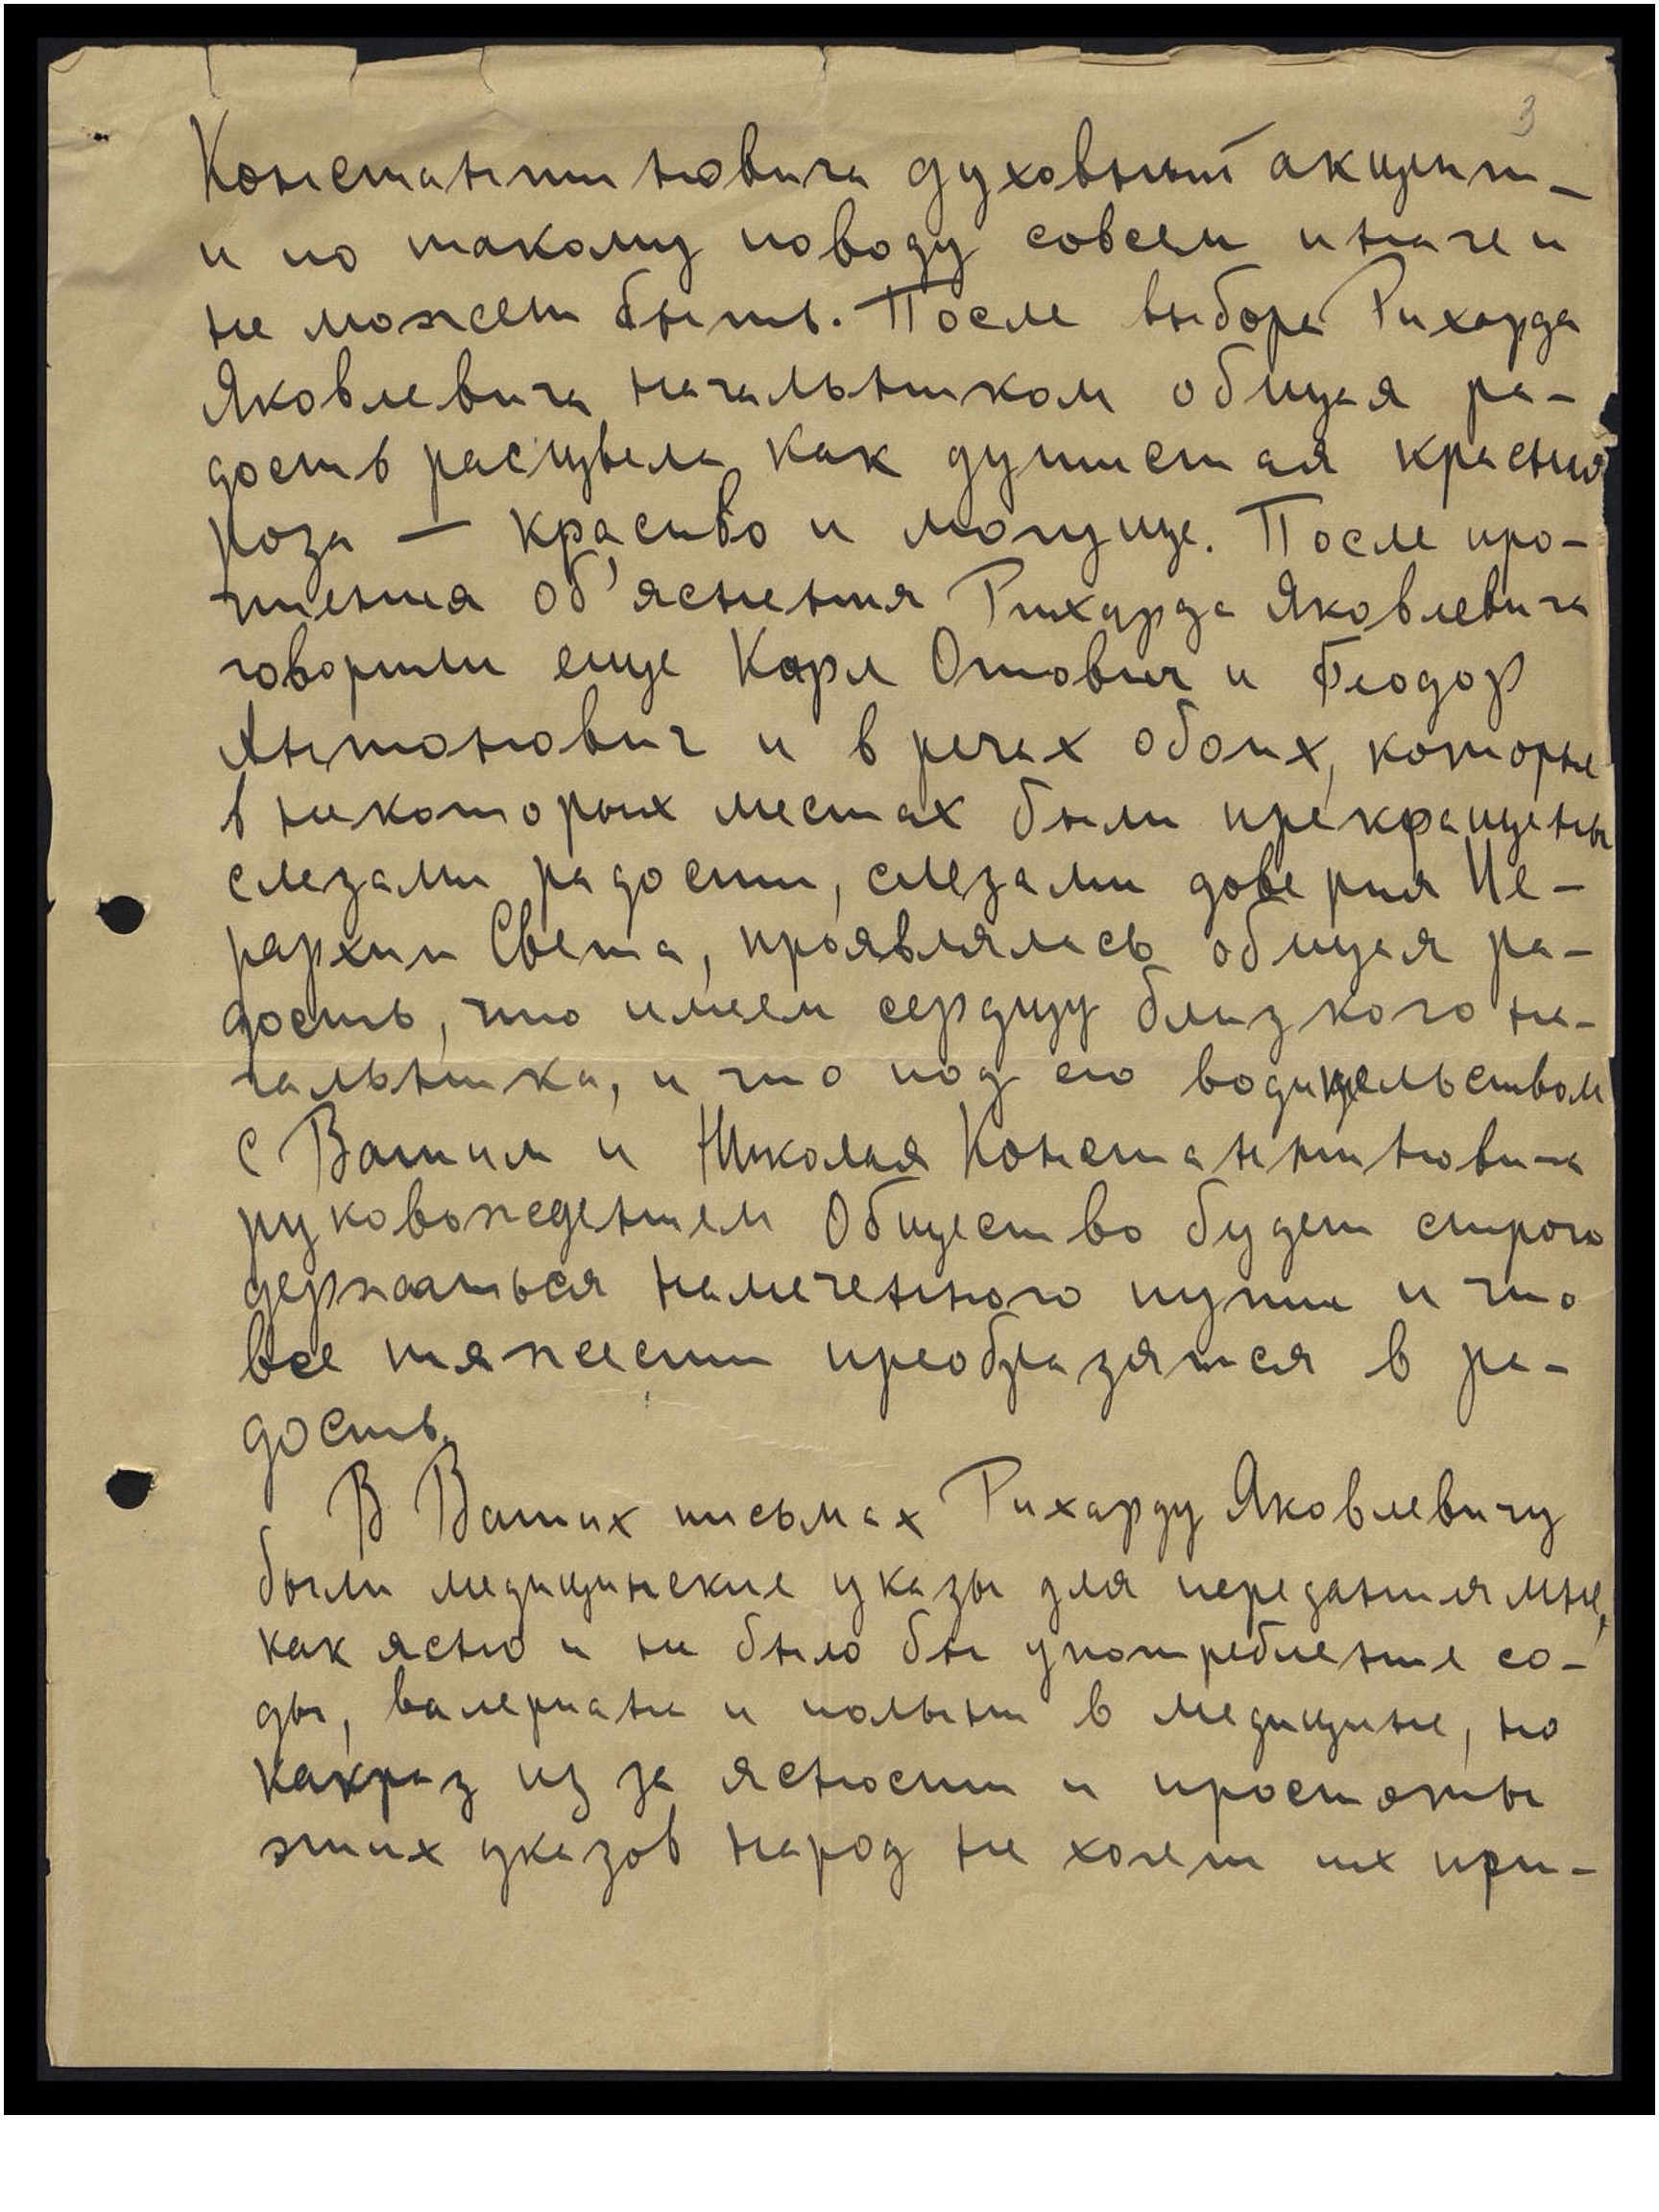 3
Константиновича духовный акцент –
и по такому поводу совсем иначе и
не может быть. После выбора Рихарда
Яковлевича начальником общая ра-
дость расцвела как душистая красная
роза — красиво и могуще. После про-
чтения об'яснения Рихарда Яковлевича
говорили еще Карл Отович и Феодор
Антонович и в речах обоих, которые
в некоторых местах были прекращены
слезами радости, слезами доверия Ие-
рархии Света, проявлялась общая ра-
дость, что имеем сердцу близкого на-
чальника, и что под его водительством
с Вашим и Николая Константиновича
руковождением Общество будет строго
держаться намеченного пути и что
все тяжести преобразятся в ра-
дость.
В Ваших письмах Рихарду Яковлевичу
были медицинские указы для передания мне,
как ясно и не было бы употребление со-
ды, валериана и полыни в медицине, но
какраз из за ясности и простоты
этих указов народ не хочет их при-